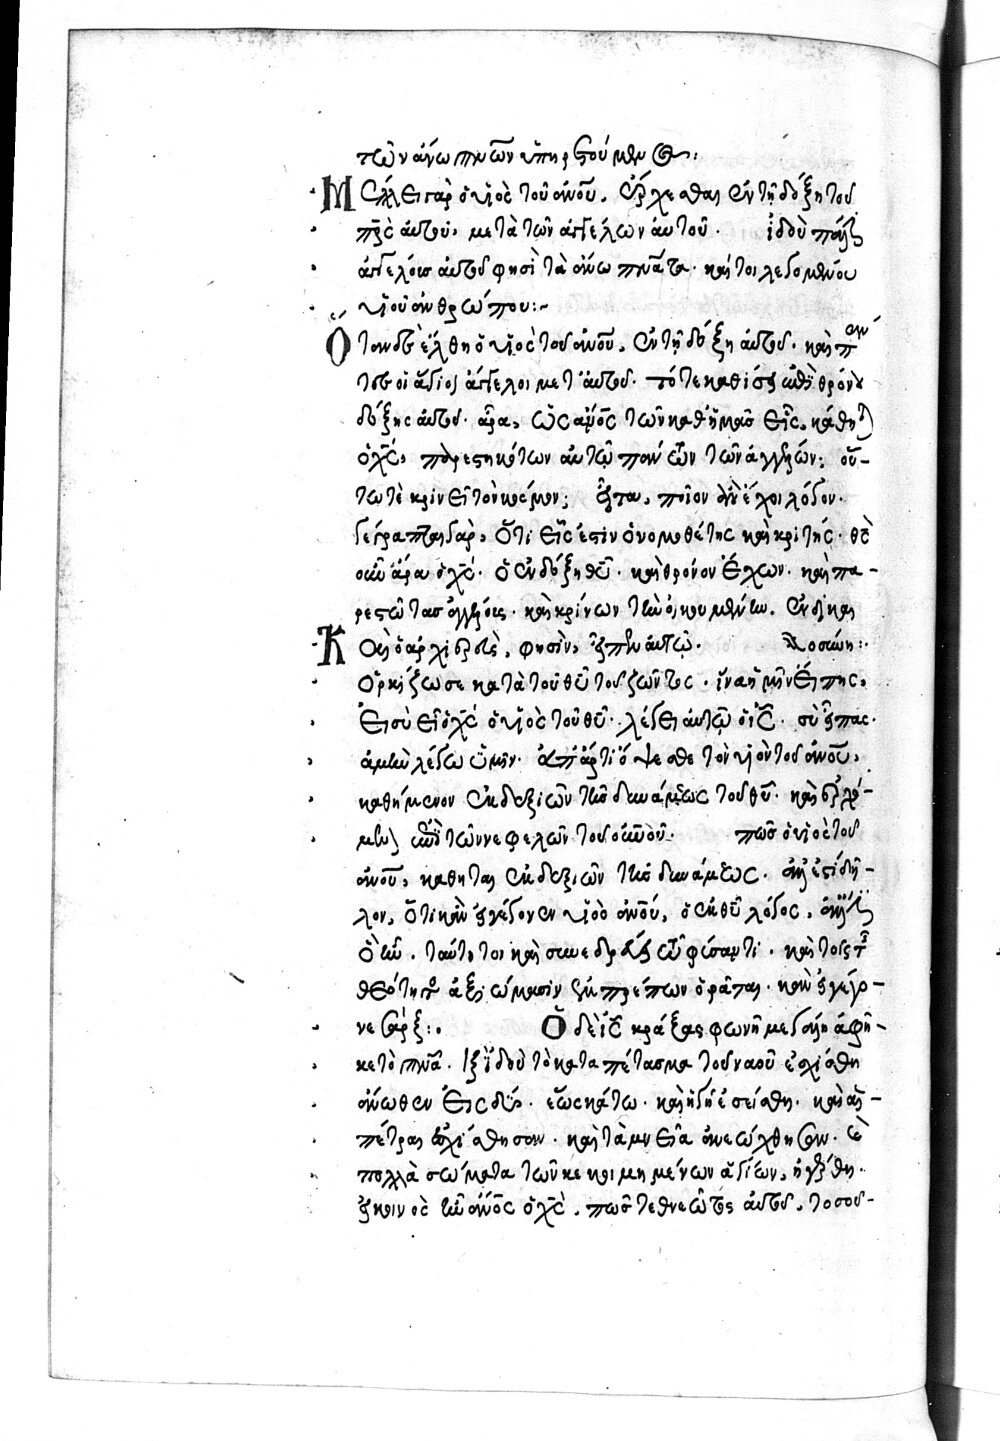 τῶν ἄνω πνῶν ὑπηρετούμεν
Μέλλει γὰρ ὁ υἱὸς τοῦ ἀνου, ἔρχεσθαι ἐν τῇ δόξῃ τοῦ
πρς αὐτοῦ, μετὰ τῶν ἀγγέλων αὐτοῦ. ἰδοὺ πάλιν
ἀγγέλους αὐτοῦ φησὶ τὰ ἄνω πνατα. καίτοι λεγομένου
υἱοῦ ἀνθρώπου:-
Ὅταν δὲ ἔλθῃ ὁ υἱὸς τοῦ ἀνου, ἐν τῇ δόξῃ αὐτοῦ. καὶ πάν
τες οἱ ἅγιοι ἄγγελοι μετ' αὐτοῦ. τότε καθίσει ἐπὶ θρόνου
δόξης αὐτοῦ. ἆρα, ὡς ἀνος τῶν καθ' ἡμᾶς εἷς, κάθηται
ὁ χς, παρεστηκότων αὐτῷ πάντων τῶν ἀγγέλων; οὕ-
τω τὲ κρινεῖ τὸν κόσμον; εἶτα, ποῖον ἂν ἔχοι λόγον.
γέγραπται γὰρ, ὅτι εἷς ἐστὶν ὁ νομοθέτης καὶ κριτής. θς
οὖν ἄρα ὁ χς. ὁ ἐν δόξῃ θυ. καὶ θρόνον ἔχων. καὶ πα-
ρεστῶτας ἀγγέλους. καὶ κρίνων τὴν οἰκουμένην, ἐν δικαι
Καὶ ὁ ἀρχιερεὺς, φησὶν, εἶπεν αὐτῷ. οσύνῃ:-
Ὁρκίζω σε κατὰ τοῦ θυ τοῦ ζῶντος. ἵνα ἡμῖν εἴπῃς,
εἰ σὺ εἶ ὁ χς ὁ υἱὸς τοῦ θυ. λέγει αὐτῷ ὁ ις. σὺ εἶπας.
ἀμὴν λέγω ὑμῖν. ἀπάρτι ὄψεσθε τὸν υἱὸν τοῦ ἀνου,
καθήμενον ἐκ δεξιῶν τῆς δυνάμεως τοῦ θυ. καὶ ἐρχό-
μενον ἐπὶ τῶν νεφελῶν τοῦ οὐνου. πῶς ὁ υἱὸς τοῦ
ἀνου, κάθηται ἐκ δεξιῶν τῆς δυνάμεως. ἀλλ' ἔστι δῆ-
λον, ὅτι κἂν εἰ γέγονεν υἱὸς ἀνου, ὁ ἐκ θυ λόγος,
ὃ ἦν. ταύτῃ τοι καὶ συνεδρεύει τῷ φύσαντι. καὶ τοῖς τῆς
θεότητος ἀξιώμασιν ἐμπρέπων ὁρᾶται. κἂν εἰ γέγο-
νε σάρξ:. Ὁ δὲ ις κράξας φωνῇ μεγάλῃ ἀφῆ-
κε τὸ πνα. καὶ ἰδοὺ τὸ καταπέτασμα τοῦ ναοῦ ἐσχίσθη
ἄνωθεν εἰς δύο. ἕως κάτω. καὶ ἡ γῆ ἐσείσθη. καὶ αἱ
πέτραι ἐσχίσθησαν. καὶ τὰ μνεῖα ἀνεώχθησαν. καὶ
πολλὰ σώματα τῶν κεκοιμημένων ἁγίων, ἠγέρθη.
εἰ κοινὸς ἦν ἀνος ὁ χς, πῶς τεθνεῶτος αὐτοῦ, τοσού-